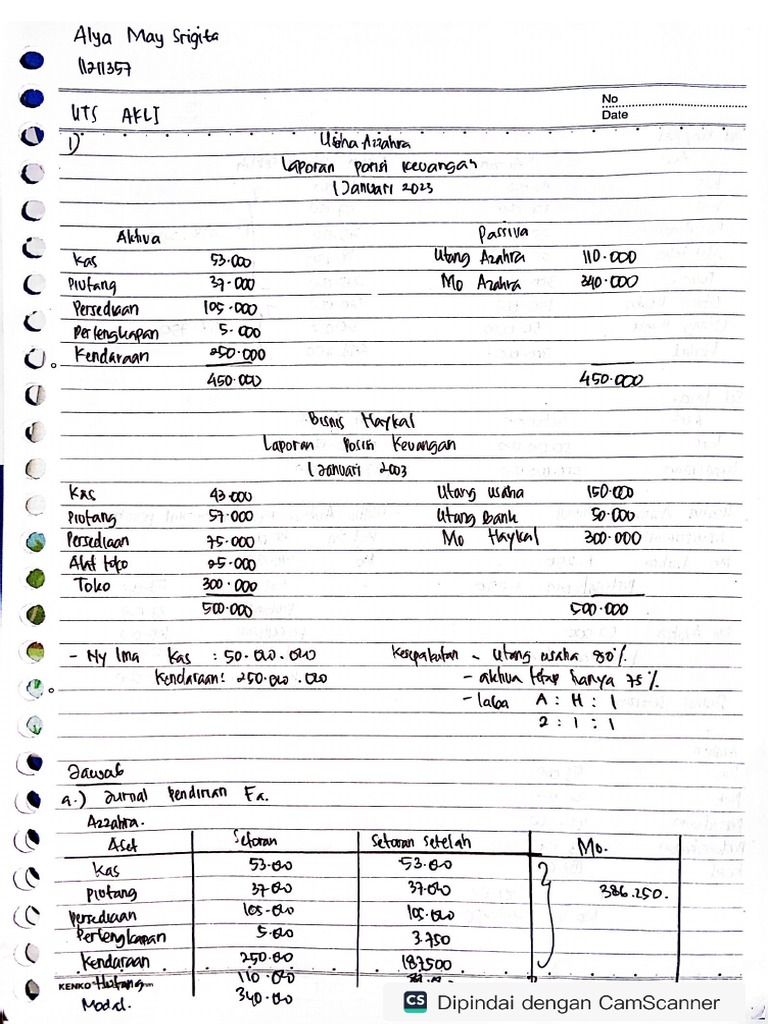 Alya May Srigita
11211357
No
Date
UTS AKLI
1) Usaha Azzahra
Laporan Posisi Keuangan
1 Januari 2023
Aktiva Passiva
Kas 53.000 Utang Azahra 110.000
Piutang 37.000 Mo Azahra 340.000
Persediaan 105.000
Perlengkapan 5.000
Kendaraan 250.000
450.000 450.000
Bisnis Haykal
Laporan Posisi Keuangan
1 Januari 2003
Kas 43.000 Utang usaha 150.000
Piutang 57.000 Utang Bank 50.000
Persediaan 75.000 Mo Haykal 300.000
Alat toko 25.000
Toko 300.000
500.000 500.000
- Ny Ima Kas : 50.000.000 Kesepakatan - Utang usaha 80%
Kendaraan: 250.000.000 - aktiva tetap hanya 75%
- laba A : H : I
2 : 1 : 1
Jawab
a.) Jurnal Pendirian Fa.
Azzahra.
Aset Setoran Setoran setelah Mo.
Kas 53.000 53.000
Piutang 37.000 37.000 386.250.
Persediaan 105.000 105.000
Perlengkapan 5.000 3.750
Kendaraan 250.000 187.500
KENKO Hutang 110.000
Modal. 340.000
CS Dipindai dengan CamScanner